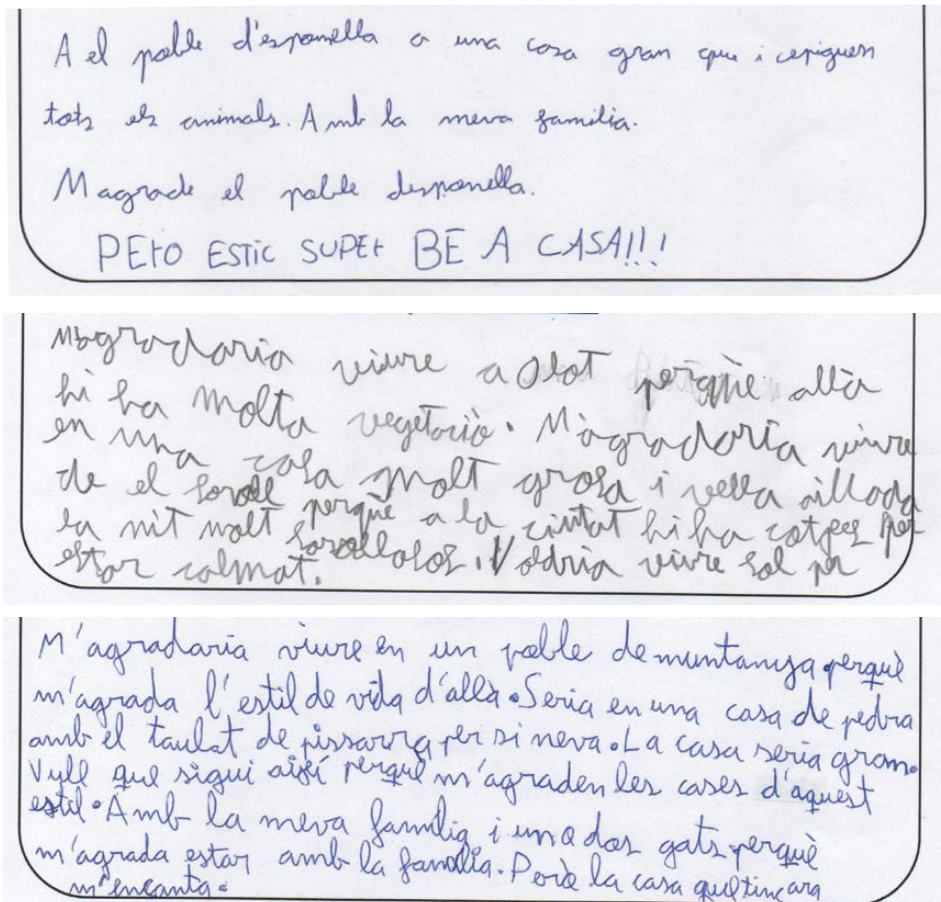 A el poble d'esponella a una casa gran que i cepiguen
tots els animals. Amb la meva familia.
Magrade el poble desponella.
PErO ESTIC SUPEr BE A CASA!!!
M'agradaria viure a Olot perquè allà
hi ha molta vegetació. M'agradaria viure
en una casa molt grosa i vella aillada
de el soroll perquè a la ciutat hi ha cotges per
la nit molt sorollosos. Voldria viure sol per
estar calmat.
M'agradaria viure en un poble de muntanya perquè
m'agrada l'estil de vida d'allà. Seria en una casa de pedra
amb el taulat de pissarra per si neva. La casa seria gran.
Vull que sigui així perquè m'agraden les cases d'aquest
estil. Amb la meva familia i un o dos gats perquè
m'agrada estar amb la familia. Però la casa que tinc ara
m'encanta.